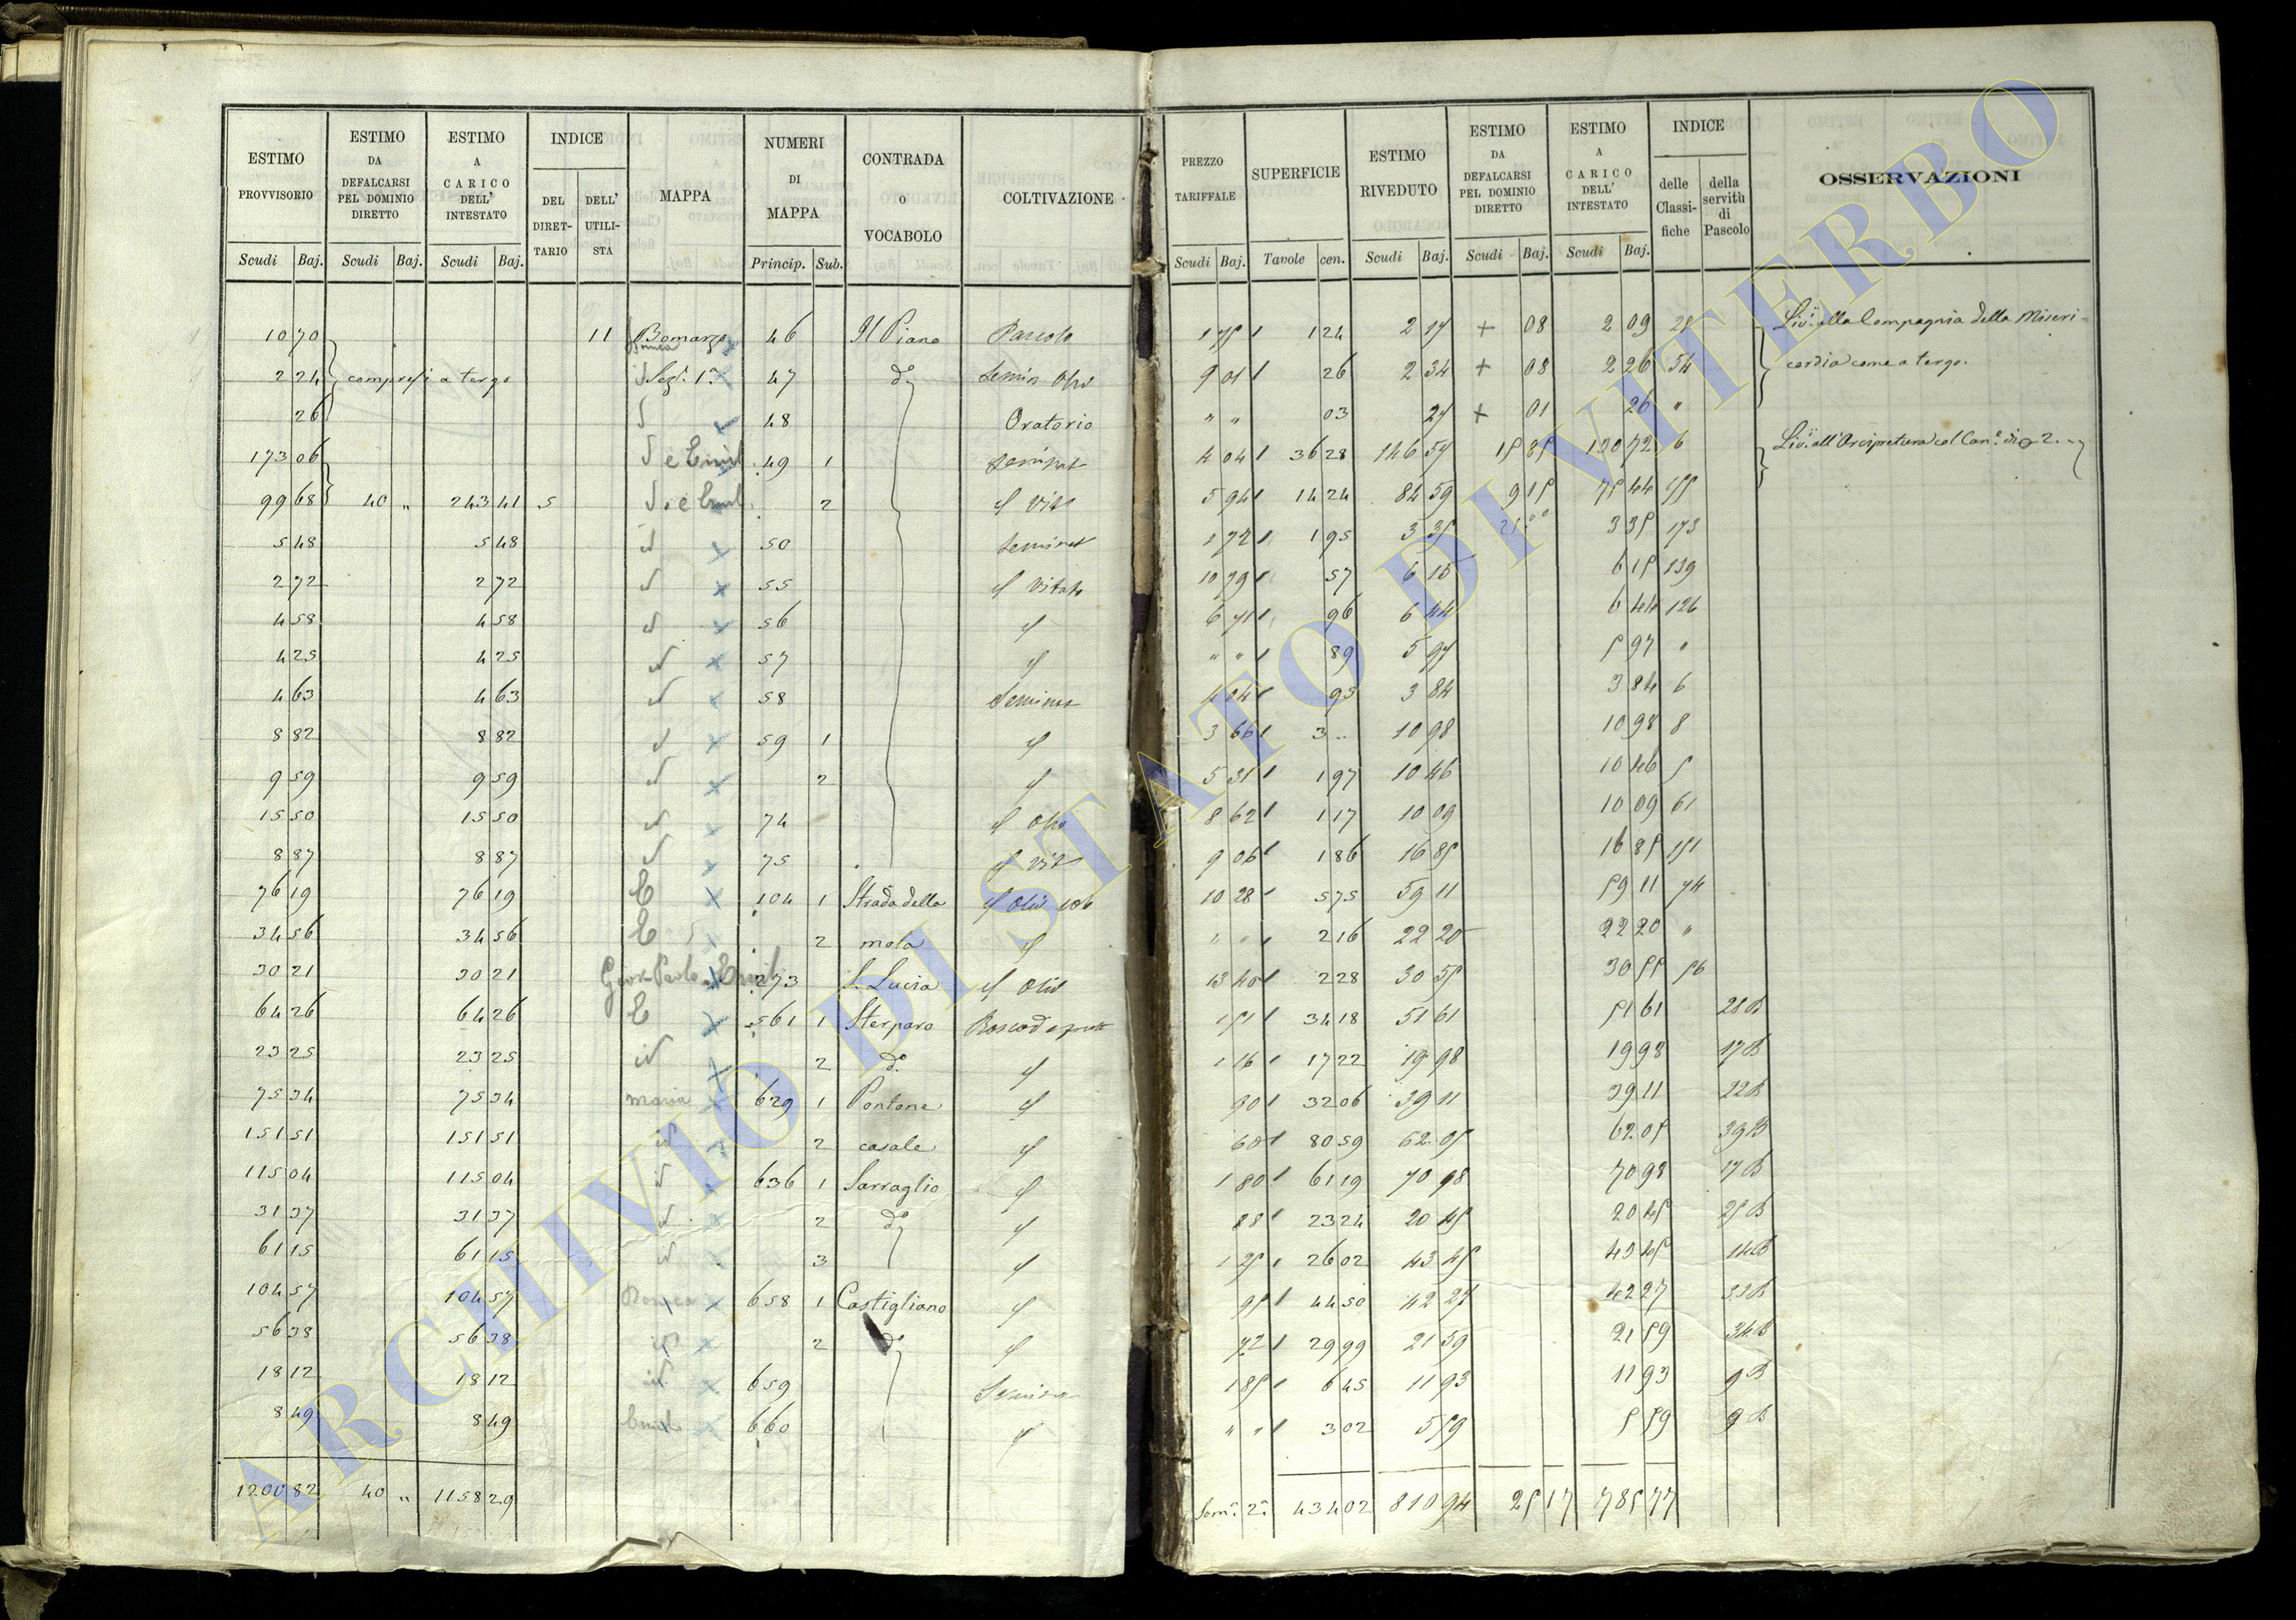 ESTIMO PROVVISORIO | ESTIMO DA DEFALCARSI PEL DOMINIO DIRETTO | ESTIMO A CARICO DELL' INTESTATO | INDICE DEL DIRET-TARIO | DELL' UTILI-STA | MAPPA | NUMERI DI MAPPA | CONTRADA o VOCABOLO | COLTIVAZIONE | PREZZO TARIFFALE | SUPERFICIE | ESTIMO RIVEDUTO | ESTIMO DA DEFALCARSI PEL DOMINIO DIRETTO | ESTIMO A CARICO DELL' INTESTATO | INDICE delle Classi-fiche | della servitù di Pascolo | OSSERVAZIONI
Scudi Baj. | Scudi Baj. | Scudi Baj. | Princip. Sub. | Scudi Baj. | Tavole cen. | Scudi Baj. | Scudi Baj. | Scudi Baj.
10 70 | 11 | Bomarzo | 46 | Il Piano | Pascolo | 1 75 | 1 24 | 2 17 | + 08 | 2 09 | 28 | Liv: alla Compagnia della Miseri-
2 24 | compresi a tergo | Sez. 1a | 47 | do | Semin Olivo | 9 01 | 26 | 2 34 | + 08 | 2 26 | 54 | cordia come a tergo.
26 | 48 | Oratorio | " " | 03 | 27 | + 01 | 26 | "
173 06 | e Emil | 49 | 1 | Seminat | 4 04 | 36 28 | 146 57 | 15 85 | 130 72 | 6 | Liv: all'Arcipretura col Can: di 2.
99 68 | 40 " | 243 41 | 5 | e Emil | 2 | Vit | 5 94 | 14 24 | 84 59 | 9 15 | 75 44 | 155
5 48 | 5 48 | 50 | Seminat | 1 72 | 1 95 | 3 35 | 3 35 | 173
2 72 | 2 72 | 55 | Vitato | 10 79 | 57 | 6 15 | 6 15 | 139
4 58 | 4 58 | 56 | 6 71 | 96 | 6 44 | 6 44 | 126
4 25 | 4 25 | 57 | " " | 89 | 5 97 | 5 97 | "
4 63 | 4 63 | 58 | Seminat | 4 04 | 95 | 3 84 | 3 84 | 6
8 82 | 8 82 | 59 | 1 | 3 66 | 3 .. | 10 98 | 10 98 | 8
9 59 | 9 59 | 2 | 5 31 | 1 97 | 10 46 | 10 46 | 5
15 50 | 15 50 | 74 | Olivo | 8 62 | 1 17 | 10 09 | 10 09 | 61
8 87 | 8 87 | 75 | Vit | 9 06 | 1 86 | 16 85 | 16 85 | 151
76 19 | 76 19 | E | 104 | 1 | Strada della | Oliv | 10 28 | 5 75 | 59 11 | 59 11 | 74
34 56 | 34 56 | E | 2 | mola | " " | 2 16 | 22 20 | 22 20 | "
30 21 | 30 21 | Giov Paolo e Emil | 273 | S. Lucia | Oliv | 13 40 | 2 28 | 30 55 | 30 55 | 56
64 26 | 64 26 | E | 561 | 1 | Sterparo | 1 51 | 34 18 | 51 61 | 51 61 | 28 B
23 25 | 23 25 | id | 2 | do | 1 16 | 17 22 | 19 98 | 19 98 | 17 B
75 34 | 75 34 | maria | 629 | 1 | Pontone | 90 | 32 06 | 39 11 | 39 11 | 22 B
151 51 | 151 51 | id | 2 | casale | 60 | 80 59 | 62 05 | 62 05 | 39 B
115 04 | 115 04 | id | 636 | 1 | Sarraglio | 1 80 | 61 19 | 70 98 | 70 98 | 17 B
31 37 | 31 37 | id | 2 | do | 88 | 23 24 | 20 45 | 20 45 | 25 B
61 15 | 61 15 | id | 3 | 1 25 | 26 02 | 43 45 | 43 45 | 14 B
104 57 | 104 57 | 658 | 1 | Castigliano | 95 | 44 50 | 42 27 | 42 27 | 33 B
56 38 | 56 38 | id | 2 | do | 72 | 29 99 | 21 59 | 21 59 | 34 B
18 12 | 18 12 | id | 659 | Semina | 1 85 | 6 45 | 11 93 | 11 93 | 9 B
8 49 | 8 49 | Emil | 660 | " " | 3 02 | 5 59 | 5 59 | 9 B
1200 82 | 40 " | 1158 29 | Som: 2a | 434 02 | 810 94 | 25 17 | 785 77
ARCHIVIO DI STATO DI VITERBO